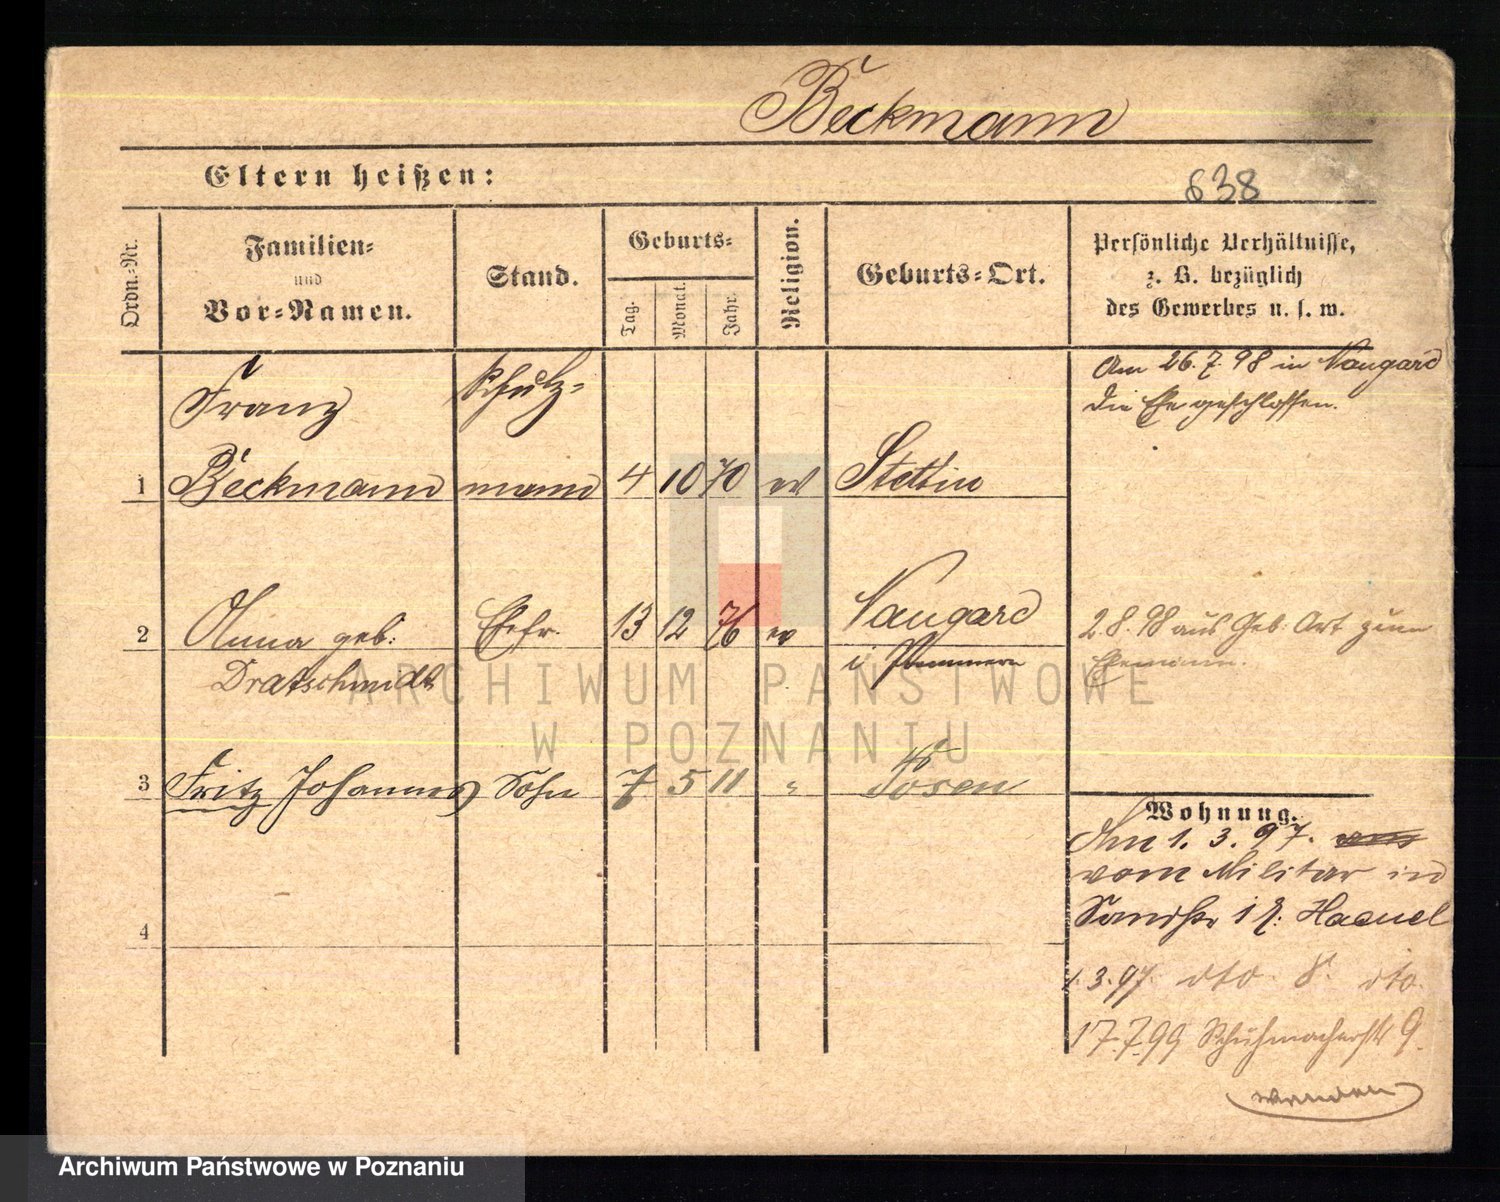 Beckmann
Eltern heißen:
638
Ordn.-Nr.
Familien-
und
Vor-Namen.
Stand.
Geburts-
Tag.
Monat.
Jahr.
Religion.
Geburts-Ort.
Persönliche Verhältnisse,
z. B. bezüglich
des Gewerbes u. s. w.
Franz Schutz-
Am 26.7.98 in Naugard
die Ehe geschlossen.
1 Beckmann mann 4 10 70 ev Stettin
2 Anna geb: Ehfr. 13 12 76 ev Naugard
Dratschmidt i Pommern
2.8.98 aus Geb. Ort zum
Ehemann.
3 Fritz Johannes Sohn 7 5 11 " Posen
4
Wohnung.
Am 1. 3. 97.
vom Militär in
Sandstr 1 Haenel
1.3.97. dto. 8. dto.
17.7.99 Schuhmacherstr 9.
wenden
ARCHIWUM PAŃSTWOWE
W POZNANIU
Archiwum Państwowe w Poznaniu